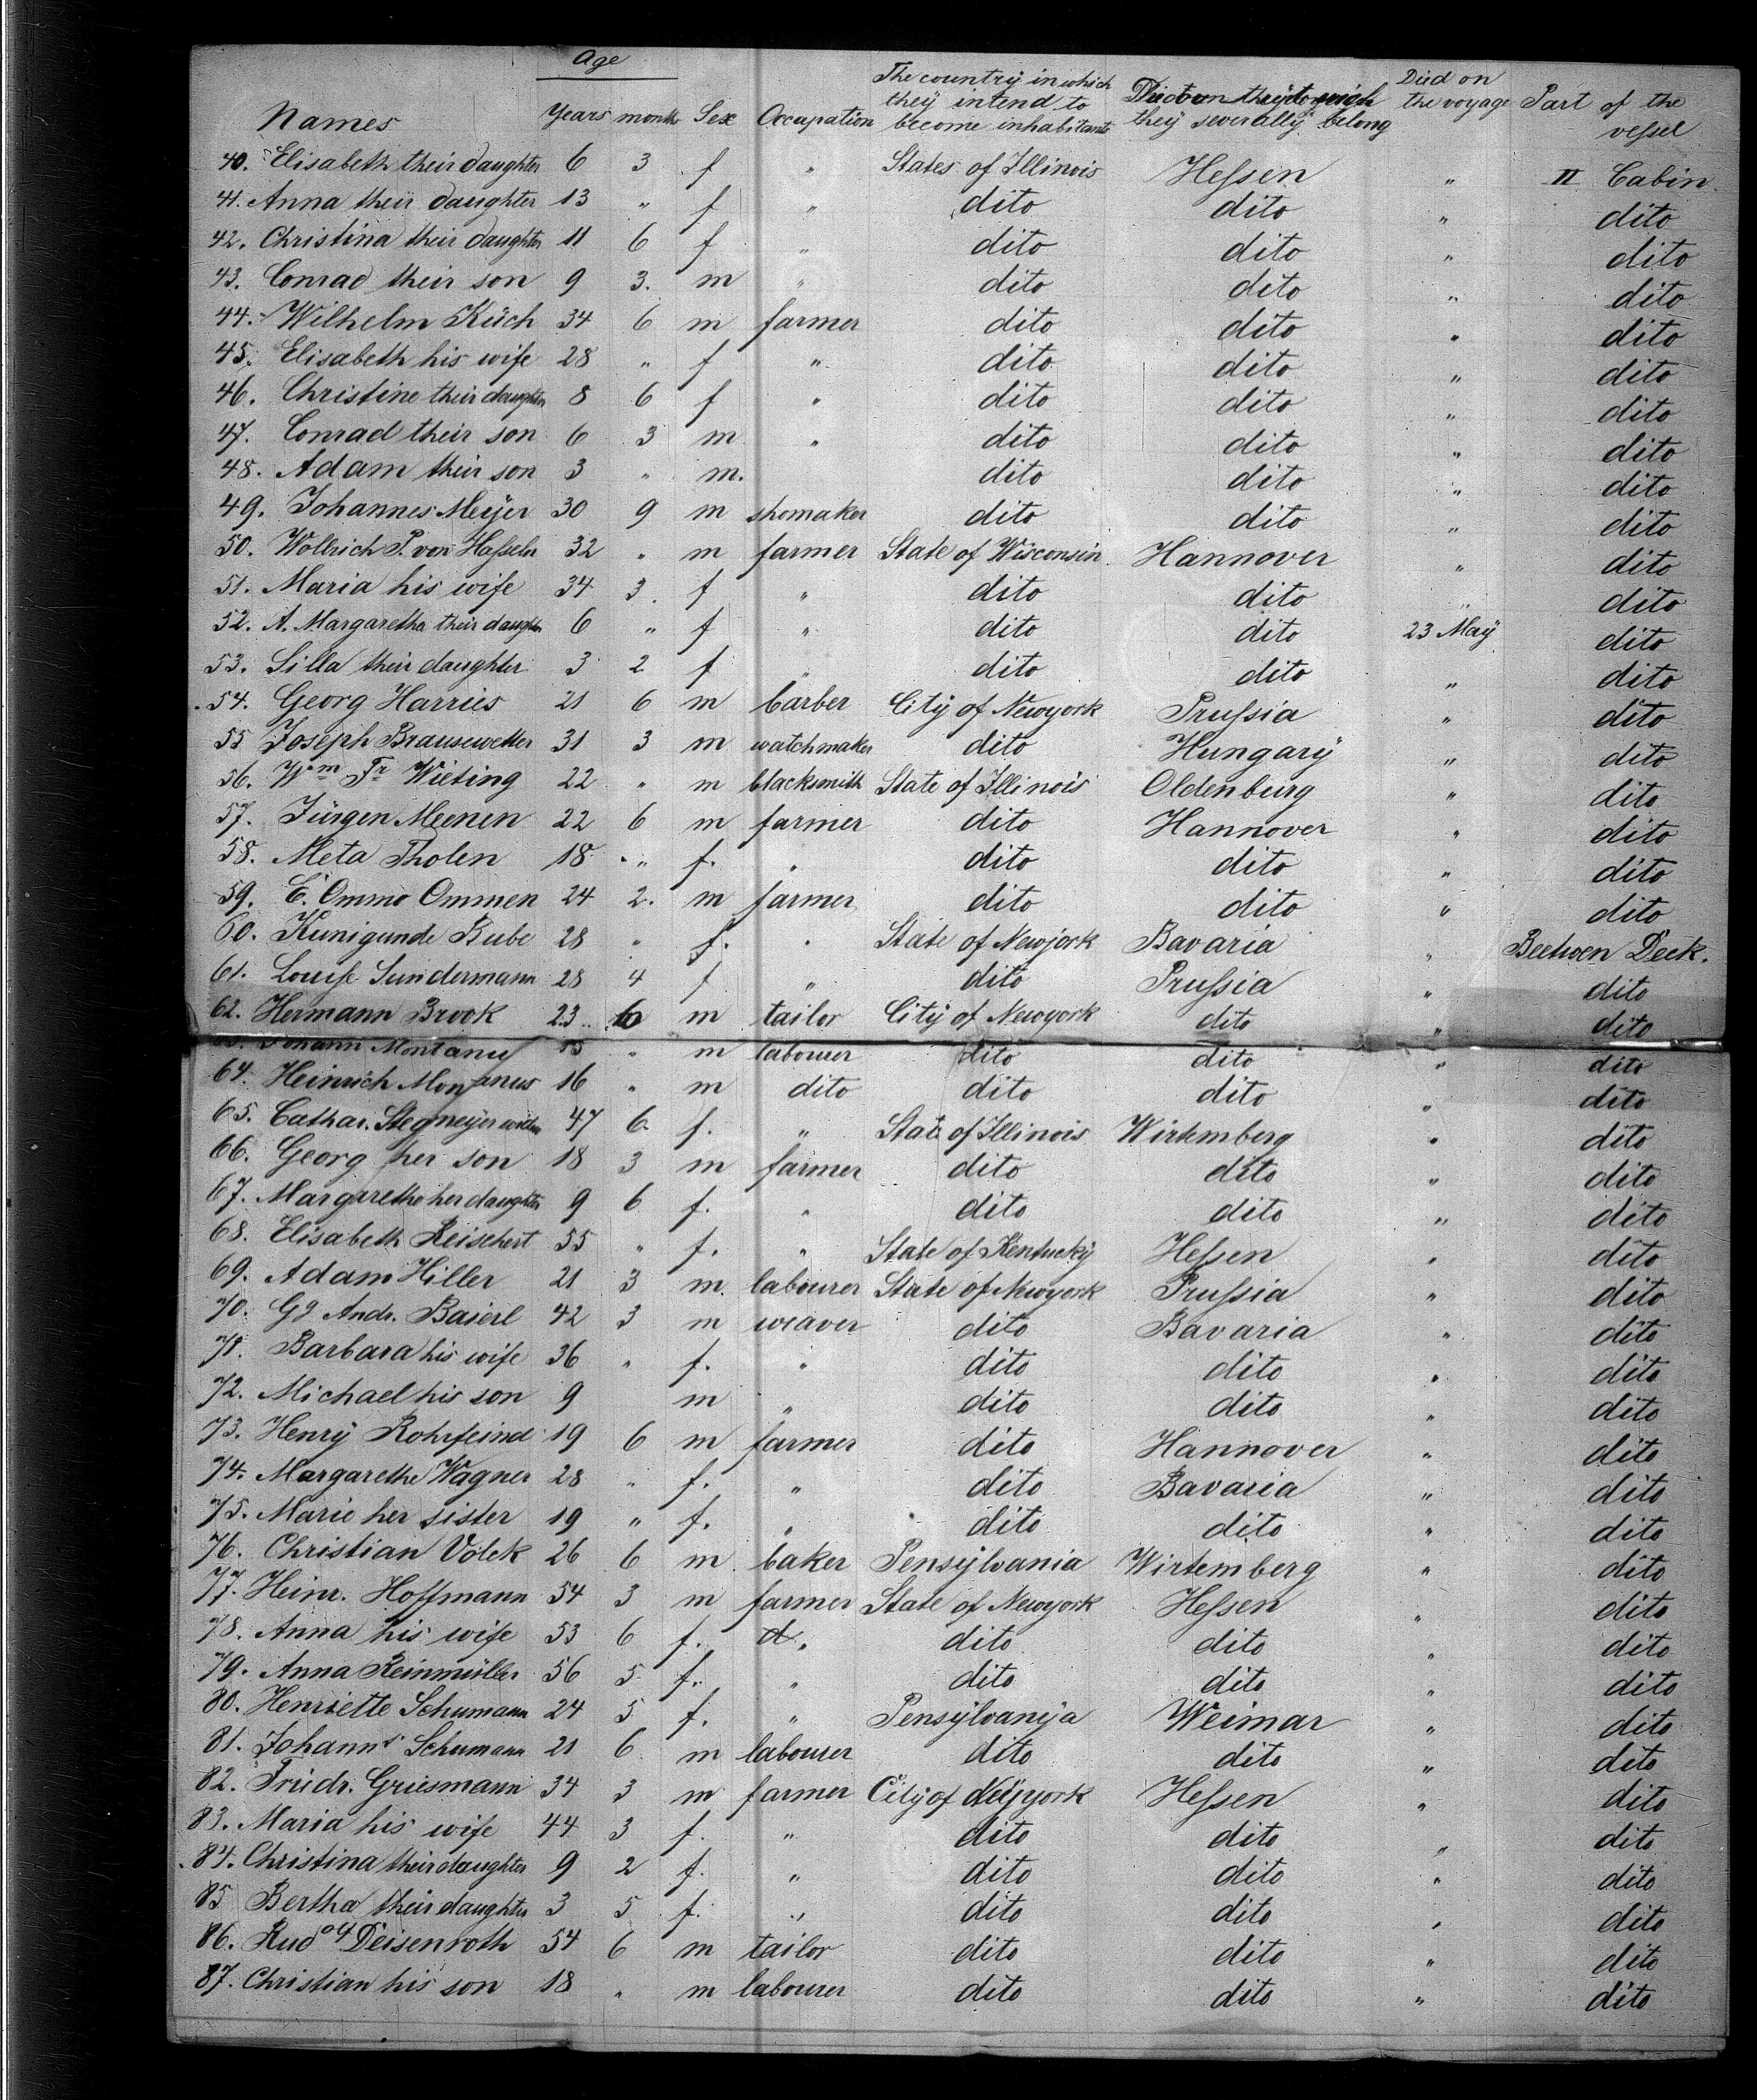 Age
Names Years month Sex Occupation The country in which they intend to become inhabitants they severally belong Died on the voyage Part of the vessel
40. Elisabeth their daughter 6 3 f " States of Illinois Hessen " II Cabin.
41. Anna their daughter 13 " f " dito dito " dito
42. Christina their daughter 11 6 f " dito dito " dito
43. Conrad their son 9 3. m " dito dito " dito
44. Wilhelm Küch 34 6 m farmer dito dito " dito
45. Elisabeth his wife 28 " f " dito dito " dito
46. Christine their daughter 8 6 f " dito dito " dito
47. Conrad their son 6 3 m " dito dito " dito
48. Adam their son 3 " m. dito dito " dito
49. Johannes Meyer 30 9 m shomaker dito dito " dito
50. Wollrich P. von Hasseln 32 " m farmer State of Wisconsin. Hannover " dito
51. Maria his wife 34 3. f " dito dito " dito
52. A. Margaretha their daughter 6 " f " dito dito 23 May dito
53. Silla their daughter 3 2 f " dito dito " dito
54. Georg Harries 21 6 m barber City of Newyork Prussia " dito
55 Joseph Brausewetter 31 3 m watchmaker dito Hungary " dito
56. Wm Fr Wieting 22 " m blacksmith State of Illinois Oldenburg " dito
57. Jürgen Meenen 22 6 m farmer dito Hannover " dito
58. Meta Tholen 18 " f. " dito dito " dito
59. E. Ommo Ommen 24 2. m farmer dito dito " dito
60. Kunigunde Bube 28 " f. " State of Newjork Bavaria " Beetwen Deck.
61. Louise Sundermann 28 4 f " dito Prussia " dito
62. Hermann Brook 23 6 m tailor City of Newyork dito " dito
Johann Montanus " m labourer dito dito " dito
64. Heinrich Montanus 16 " m dito dito dito " dito
65. Cathar. Stegmeyer widow 47 6 f. " State of Illinois Wirtemberg " dito
66. Georg her son 18 3 m farmer dito dito " dito
67. Margaretha her daughter 9 6 f. " dito dito " dito
68. Elisabeth Reischert 55 " f. " State of Kentucky Hessen " dito
69. Adam Hiller 21 3 m. labourer State of Newyork Prussia " dito
70. Gg Andr. Baierl 42 3 m weaver dito Bavaria " dito
71. Barbara his wife 36 " f. " dito dito " dito
72. Michael his son 9 m " dito dito " dito
73. Henry Rohrfeind 19 6 m farmer dito Hannover " dito
74. Margarethe Wagner 28 " f. " dito Bavaria " dito
75. Marie her sister 19 " f. " dito dito " dito
76. Christian Volck 26 6 m baker Pensylvania Wirtemberg " dito
77. Heinr. Hoffmann 54 3 m farmer State of Newyork Hessen " dito
78. Anna his wife 53 6 f. " dito dito " dito
79. Anna Reinmüller 56 5 f. " dito dito " dito
80. Henriette Schumann 24 5 f. " Pensylvanija Weimar " dito
81. Johanns Schumann 21 6 m labourer dito dito " dito
82. Friedr. Griesmann 34 3 m farmer City of Newyork Hessen " dito
83. Maria his wife 44 3 f. " dito dito " dito
84. Christina their daughter 9 2 f. " dito dito " dito
85 Bertha their daughter 3 5 f. " dito dito " dito
86. Rudolf Deisenroth 54 6 m tailor dito dito " dito
87. Christian his son 18 " m labourer dito dito " dito